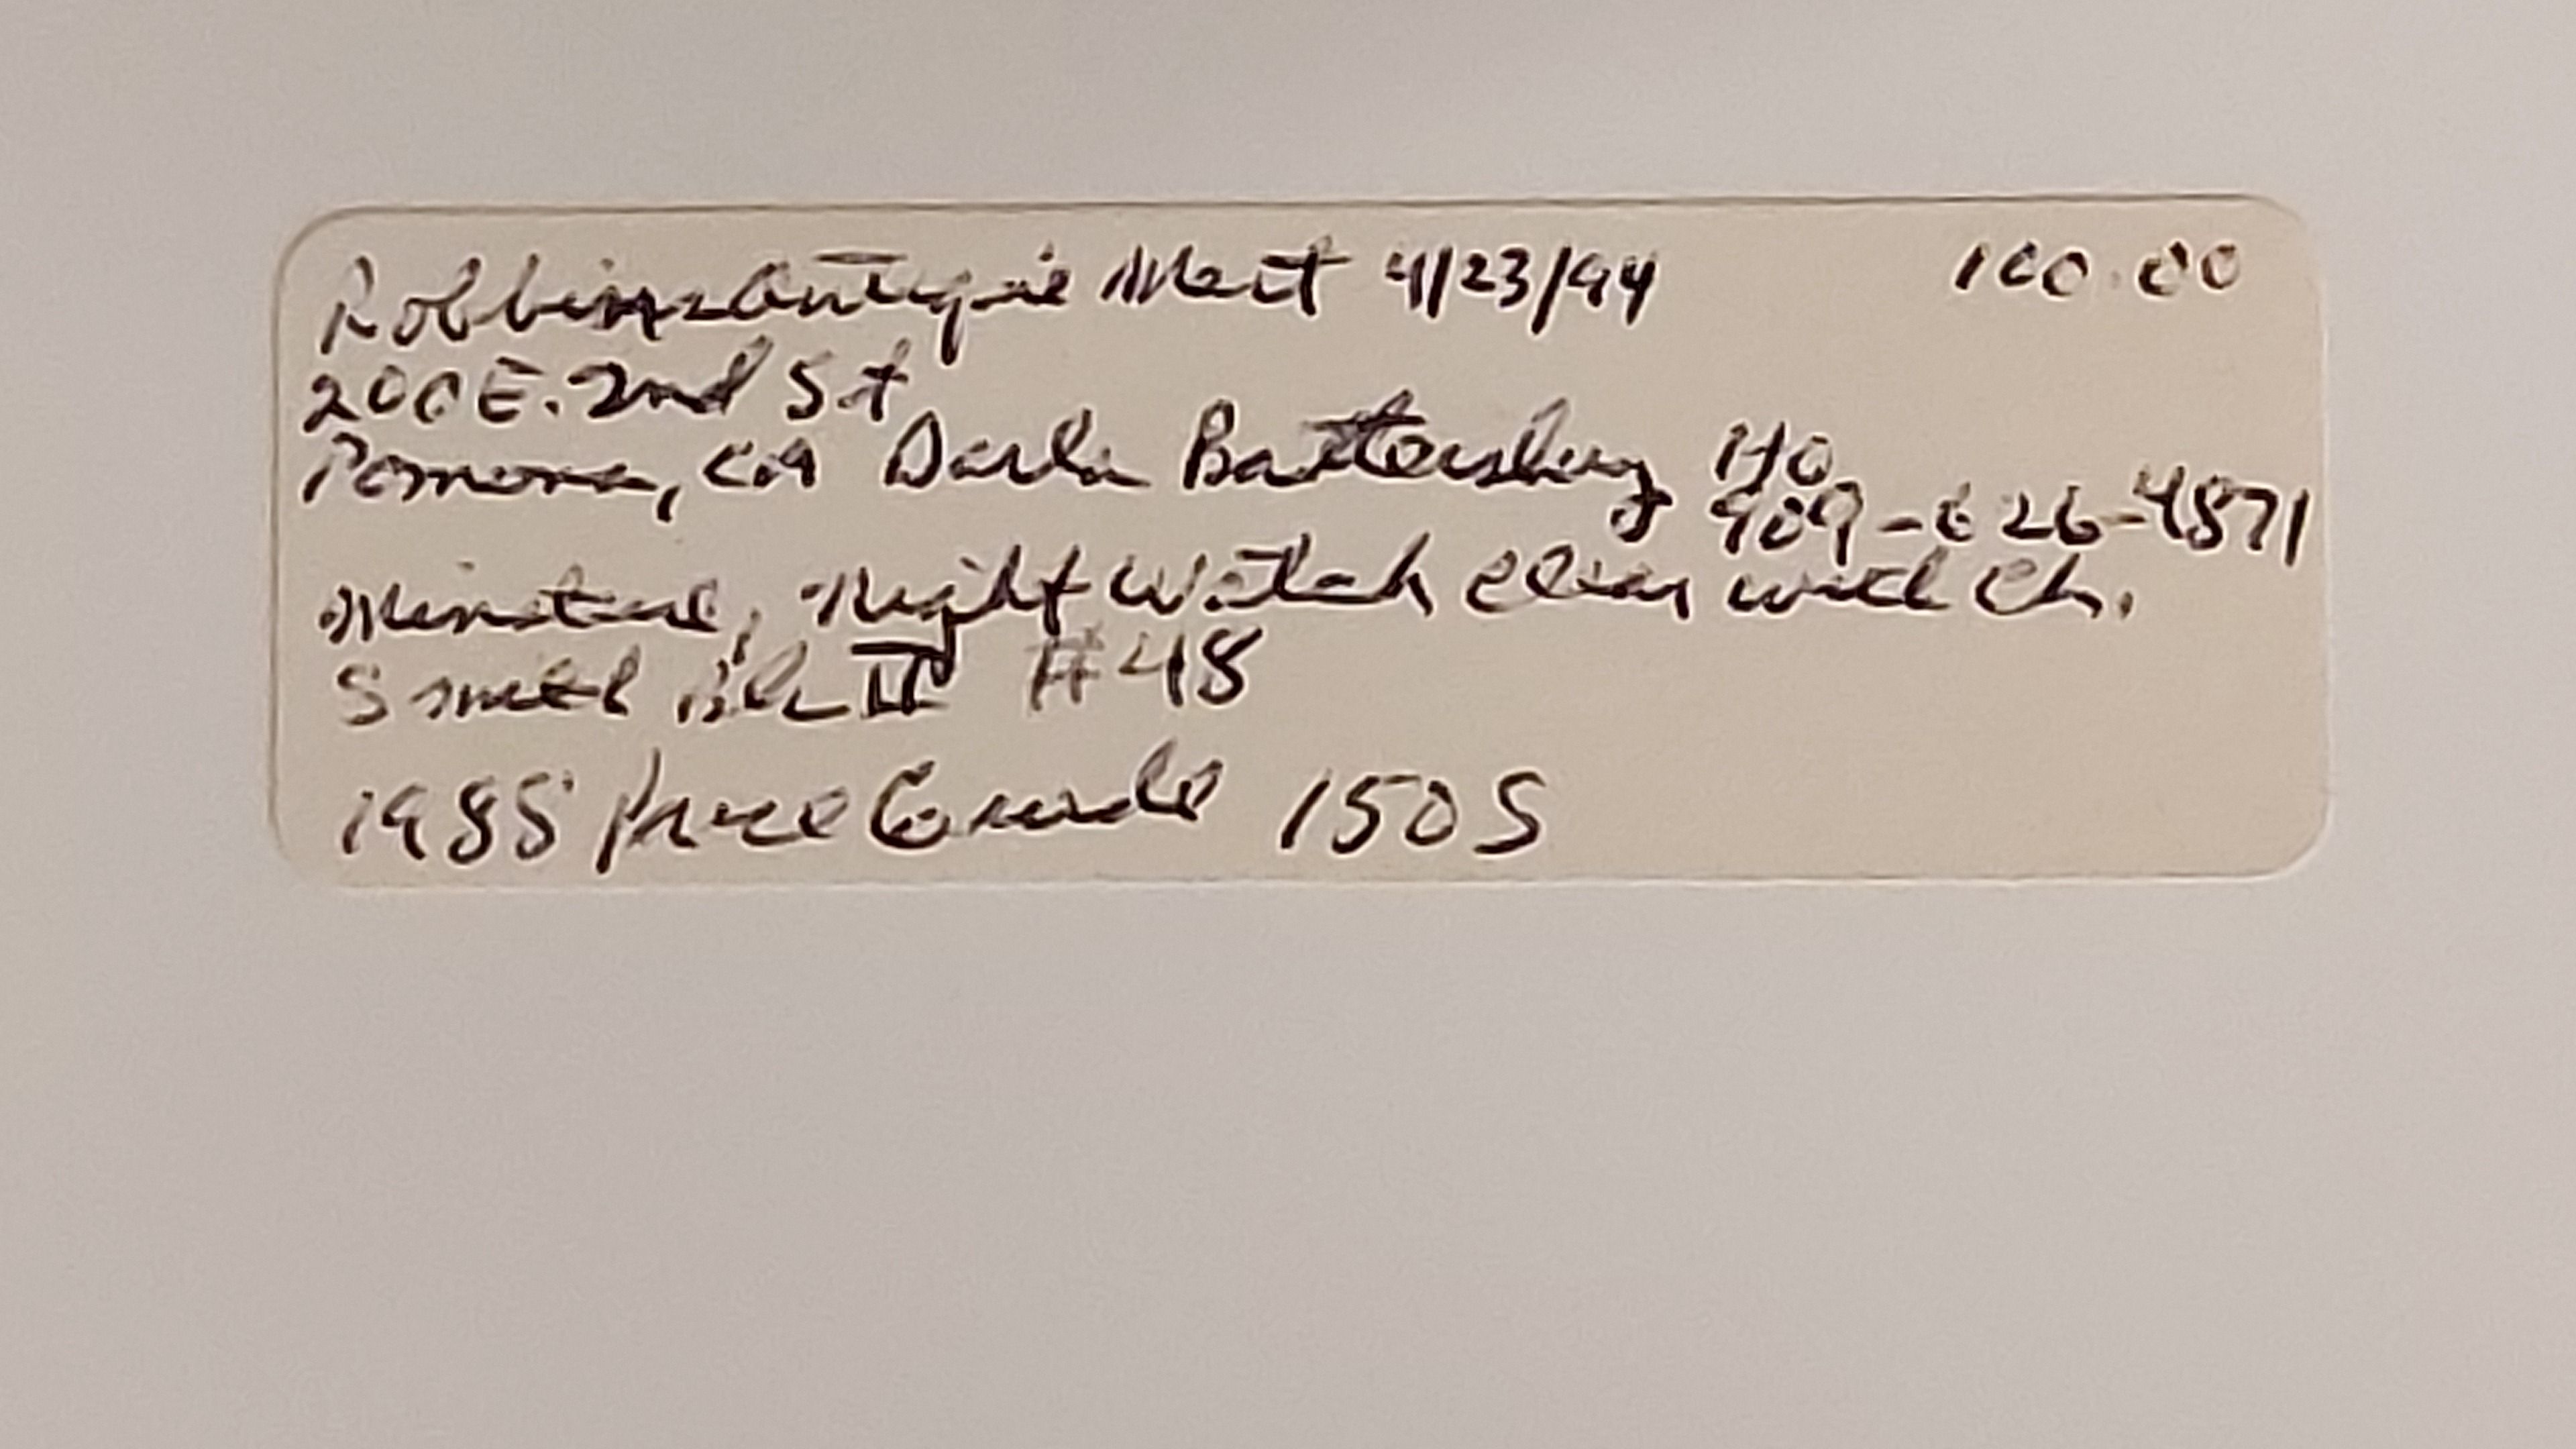 Robbins Antique Mart 4/23/94 100.00
200 E. 2nd St
Pomona, CA Darla Battersby HO
909-626-4871
Minature, Night Watch clear with Ch.
Smith Bk II #48
1988 Price Guide 150S